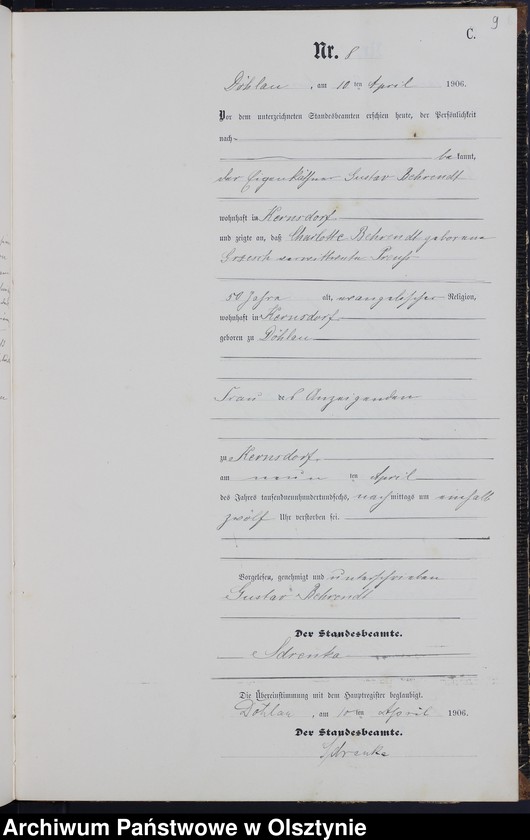 9
C.
Nr. 8
Döhlau, am 10ten April 1906.
Vor dem unterzeichneten Standesbeamten erschien heute, der Persönlichkeit
nach
bekannt,
der Eigenkäthner Gustav Behrendt
wohnhaft in Kernsdorf
und zeigte an, daß Charlotte Behrendt geborene
verwittwete Preuß
50 Jahre alt, evangelischer Religion,
wohnhaft in Kernsdorf
geboren zu Döhlau
Frau des Anzeigenden
zu Kernsdorf
am neunten April
des Jahres tausendneunhundertundsechs, nachmittags um einhalb
zwölf Uhr verstorben sei.
Vorgelesen, genehmigt und unterschrieben
Gustav Behrendt
Der Standesbeamte.
Die Übereinstimmung mit dem Hauptregister beglaubigt.
Döhlau, am 10ten April 1906.
Der Standesbeamte.
Archiwum Państwowe w Olsztynie